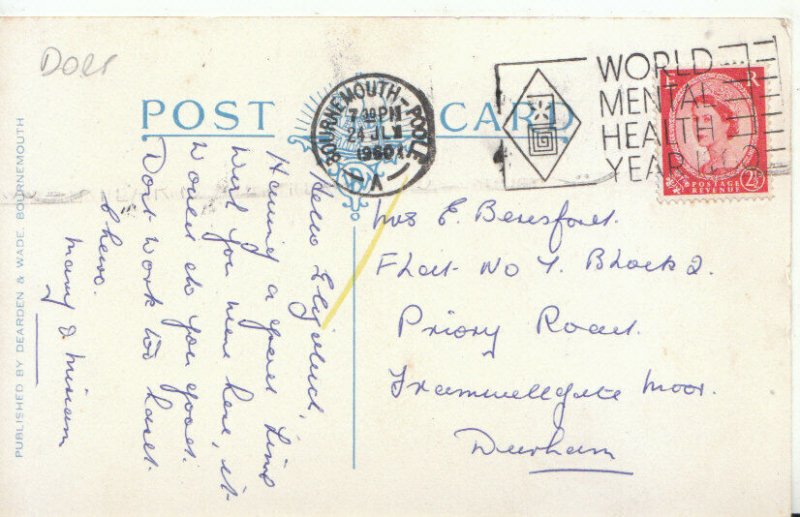 Dorr
POST CARD
BOURNEMOUTH - POOLE
7 30 PM
24 JLY
1960
V
WORLD
MENTAL
HEALTH
YEAR
E R
POSTAGE
REVENUE
2½
PUBLISHED BY DEARDEN & WADE, BOURNEMOUTH
Hello
Having a great time
Wish you were here, it
would do you good.
Dont work too hard.
Cheero.
Mary & Miriam
Mrs E. Beresford.
Flat No 7. Block 2.
Priory Road.
Framwellgate Moor.
Durham